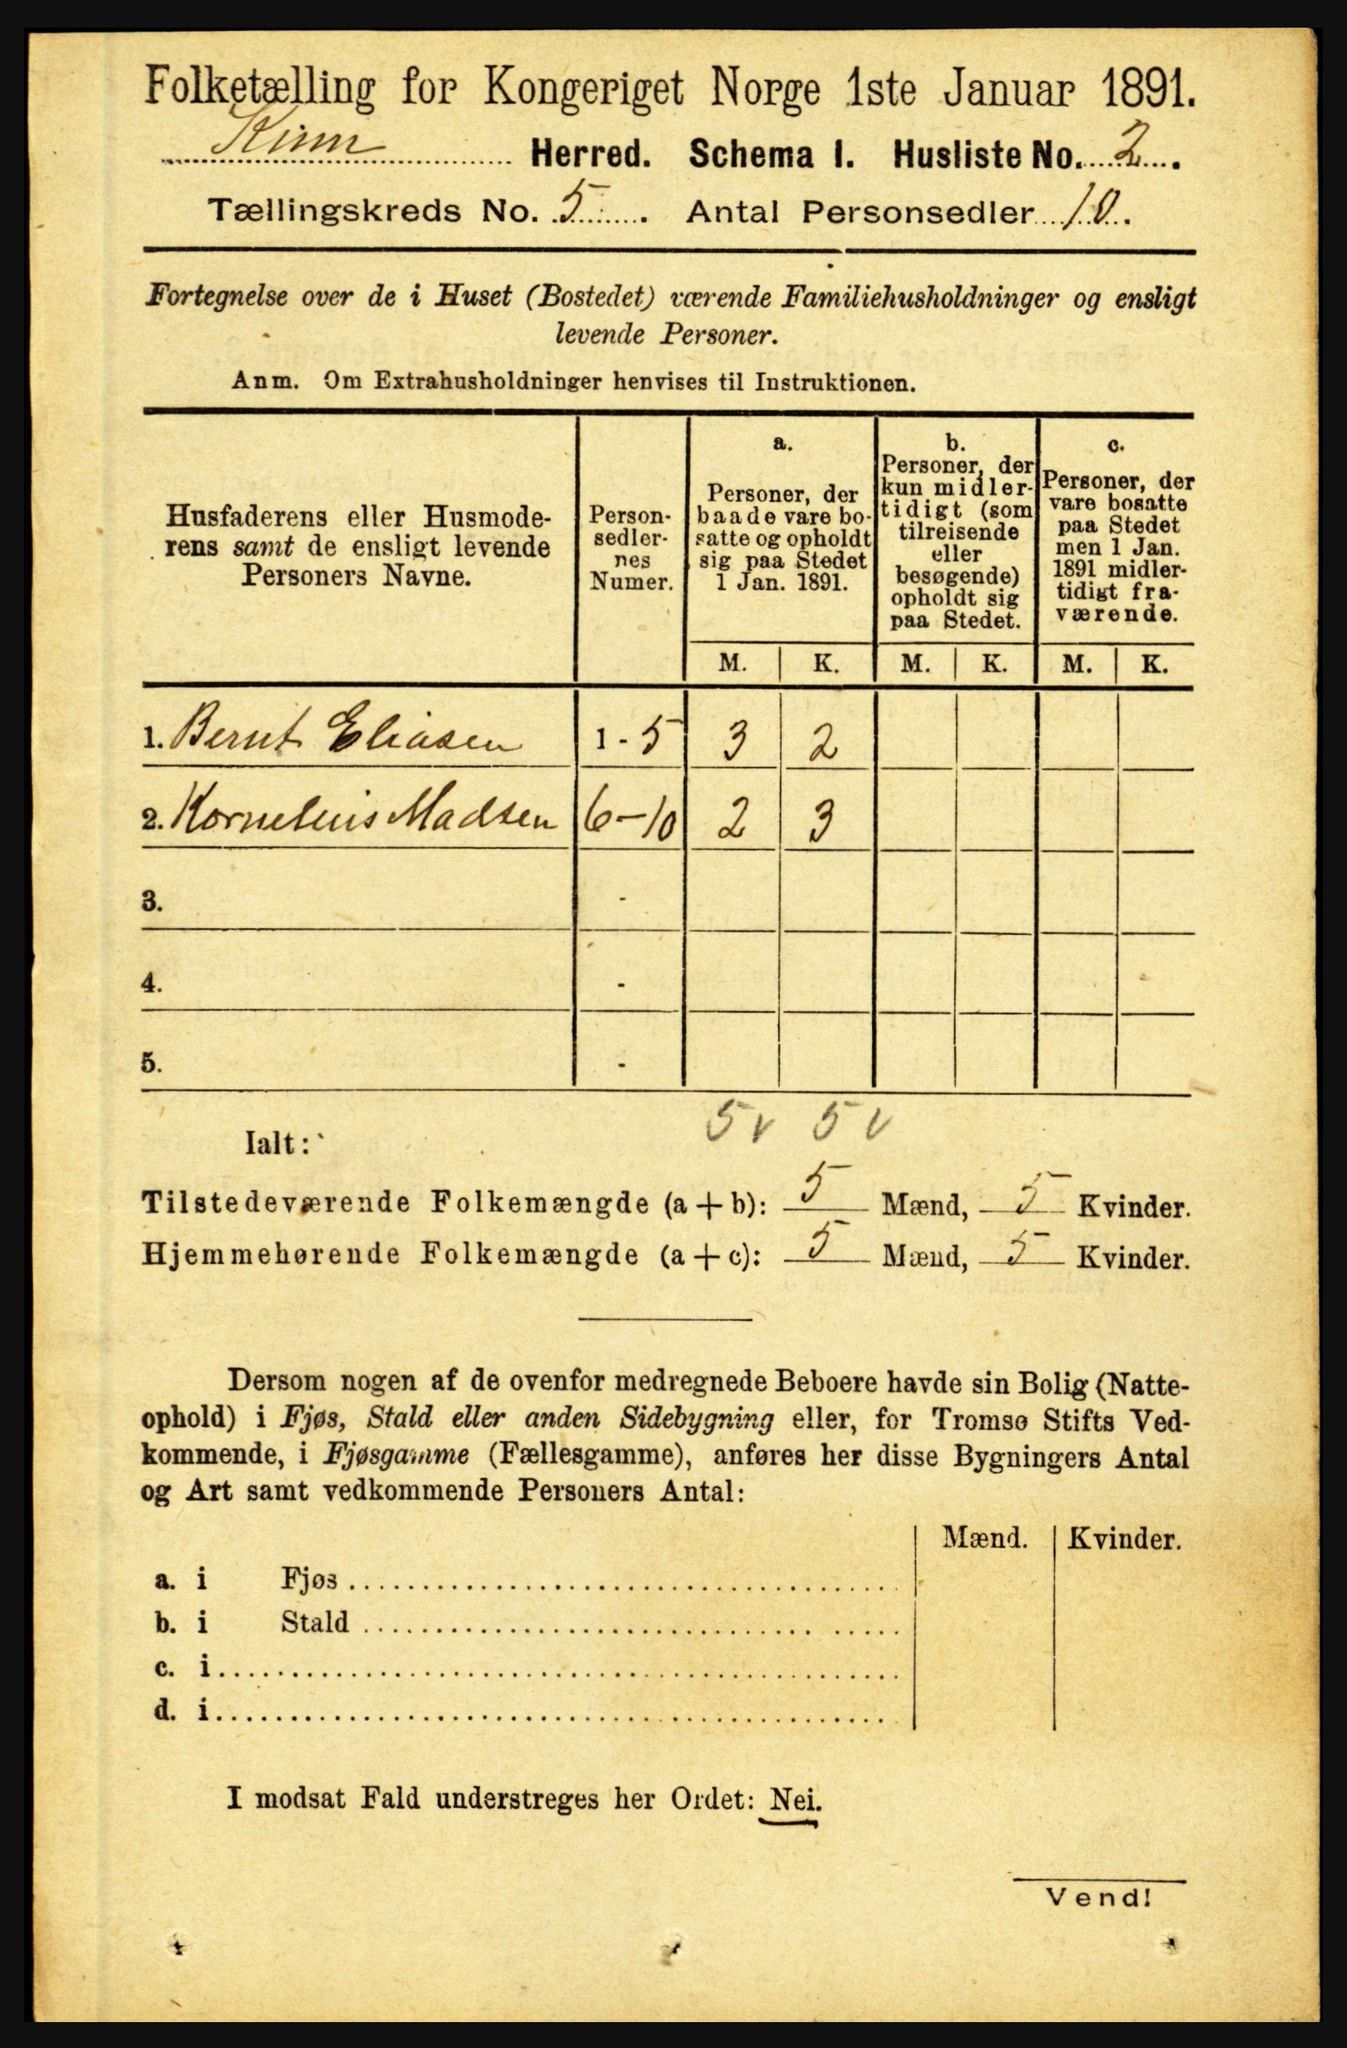 Folketælling for Kongeriget Norge 1ste Januar 1891.
Kinn Herred. Schema I. Husliste No. 2.
Tællingskreds No. 5. Antal Personsedler 10.
Fortegnelse over de i Huset (Bostedet) værende Familiehusholdninger og ensligt
levende Personer.
Anm. Om Extrahusholdninger henvises til Instruktionen.
Husfaderens eller Husmode-
rens samt de ensligt levende
Personers Navne.
Person-
sedler-
nes
Numer.
a.
Personer, der
baade vare bo-
satte og opholdt
sig paa Stedet
1 Jan. 1891.
b.
Personer, der
kun midler-
tidigt (som
tilreisende
eller
besøgende)
opholdt sig
paa Stedet.
c.
Personer, der
vare bosatte
paa Stedet
men 1 Jan.
1891 midler-
tidigt fra-
værende.
M. K. M. K. M. K.
1. Bernt Eliasen 1 - 5 3 2
2. Kornelius Madsen 6-10 2 3
3. -
4. -
5. -
5 v 5 v
Ialt:
Tilstedeværende Folkemængde (a + b): 5 Mænd, 5 Kvinder.
Hjemmehørende Folkemængde (a + c): 5 Mænd, 5 Kvinder.
Dersom nogen af de ovenfor medregnede Beboere havde sin Bolig (Natte-
ophold) i Fjøs, Stald eller anden Sidebygning eller, for Tromsø Stifts Ved-
kommende, i Fjøsgamme (Fællesgamme), anføres her disse Bygningers Antal
og Art samt vedkommende Personers Antal:
Mænd. Kvinder.
a. i Fjøs
b. i Stald
c. i
d. i
I modsat Fald understreges her Ordet: Nei.
Vend!